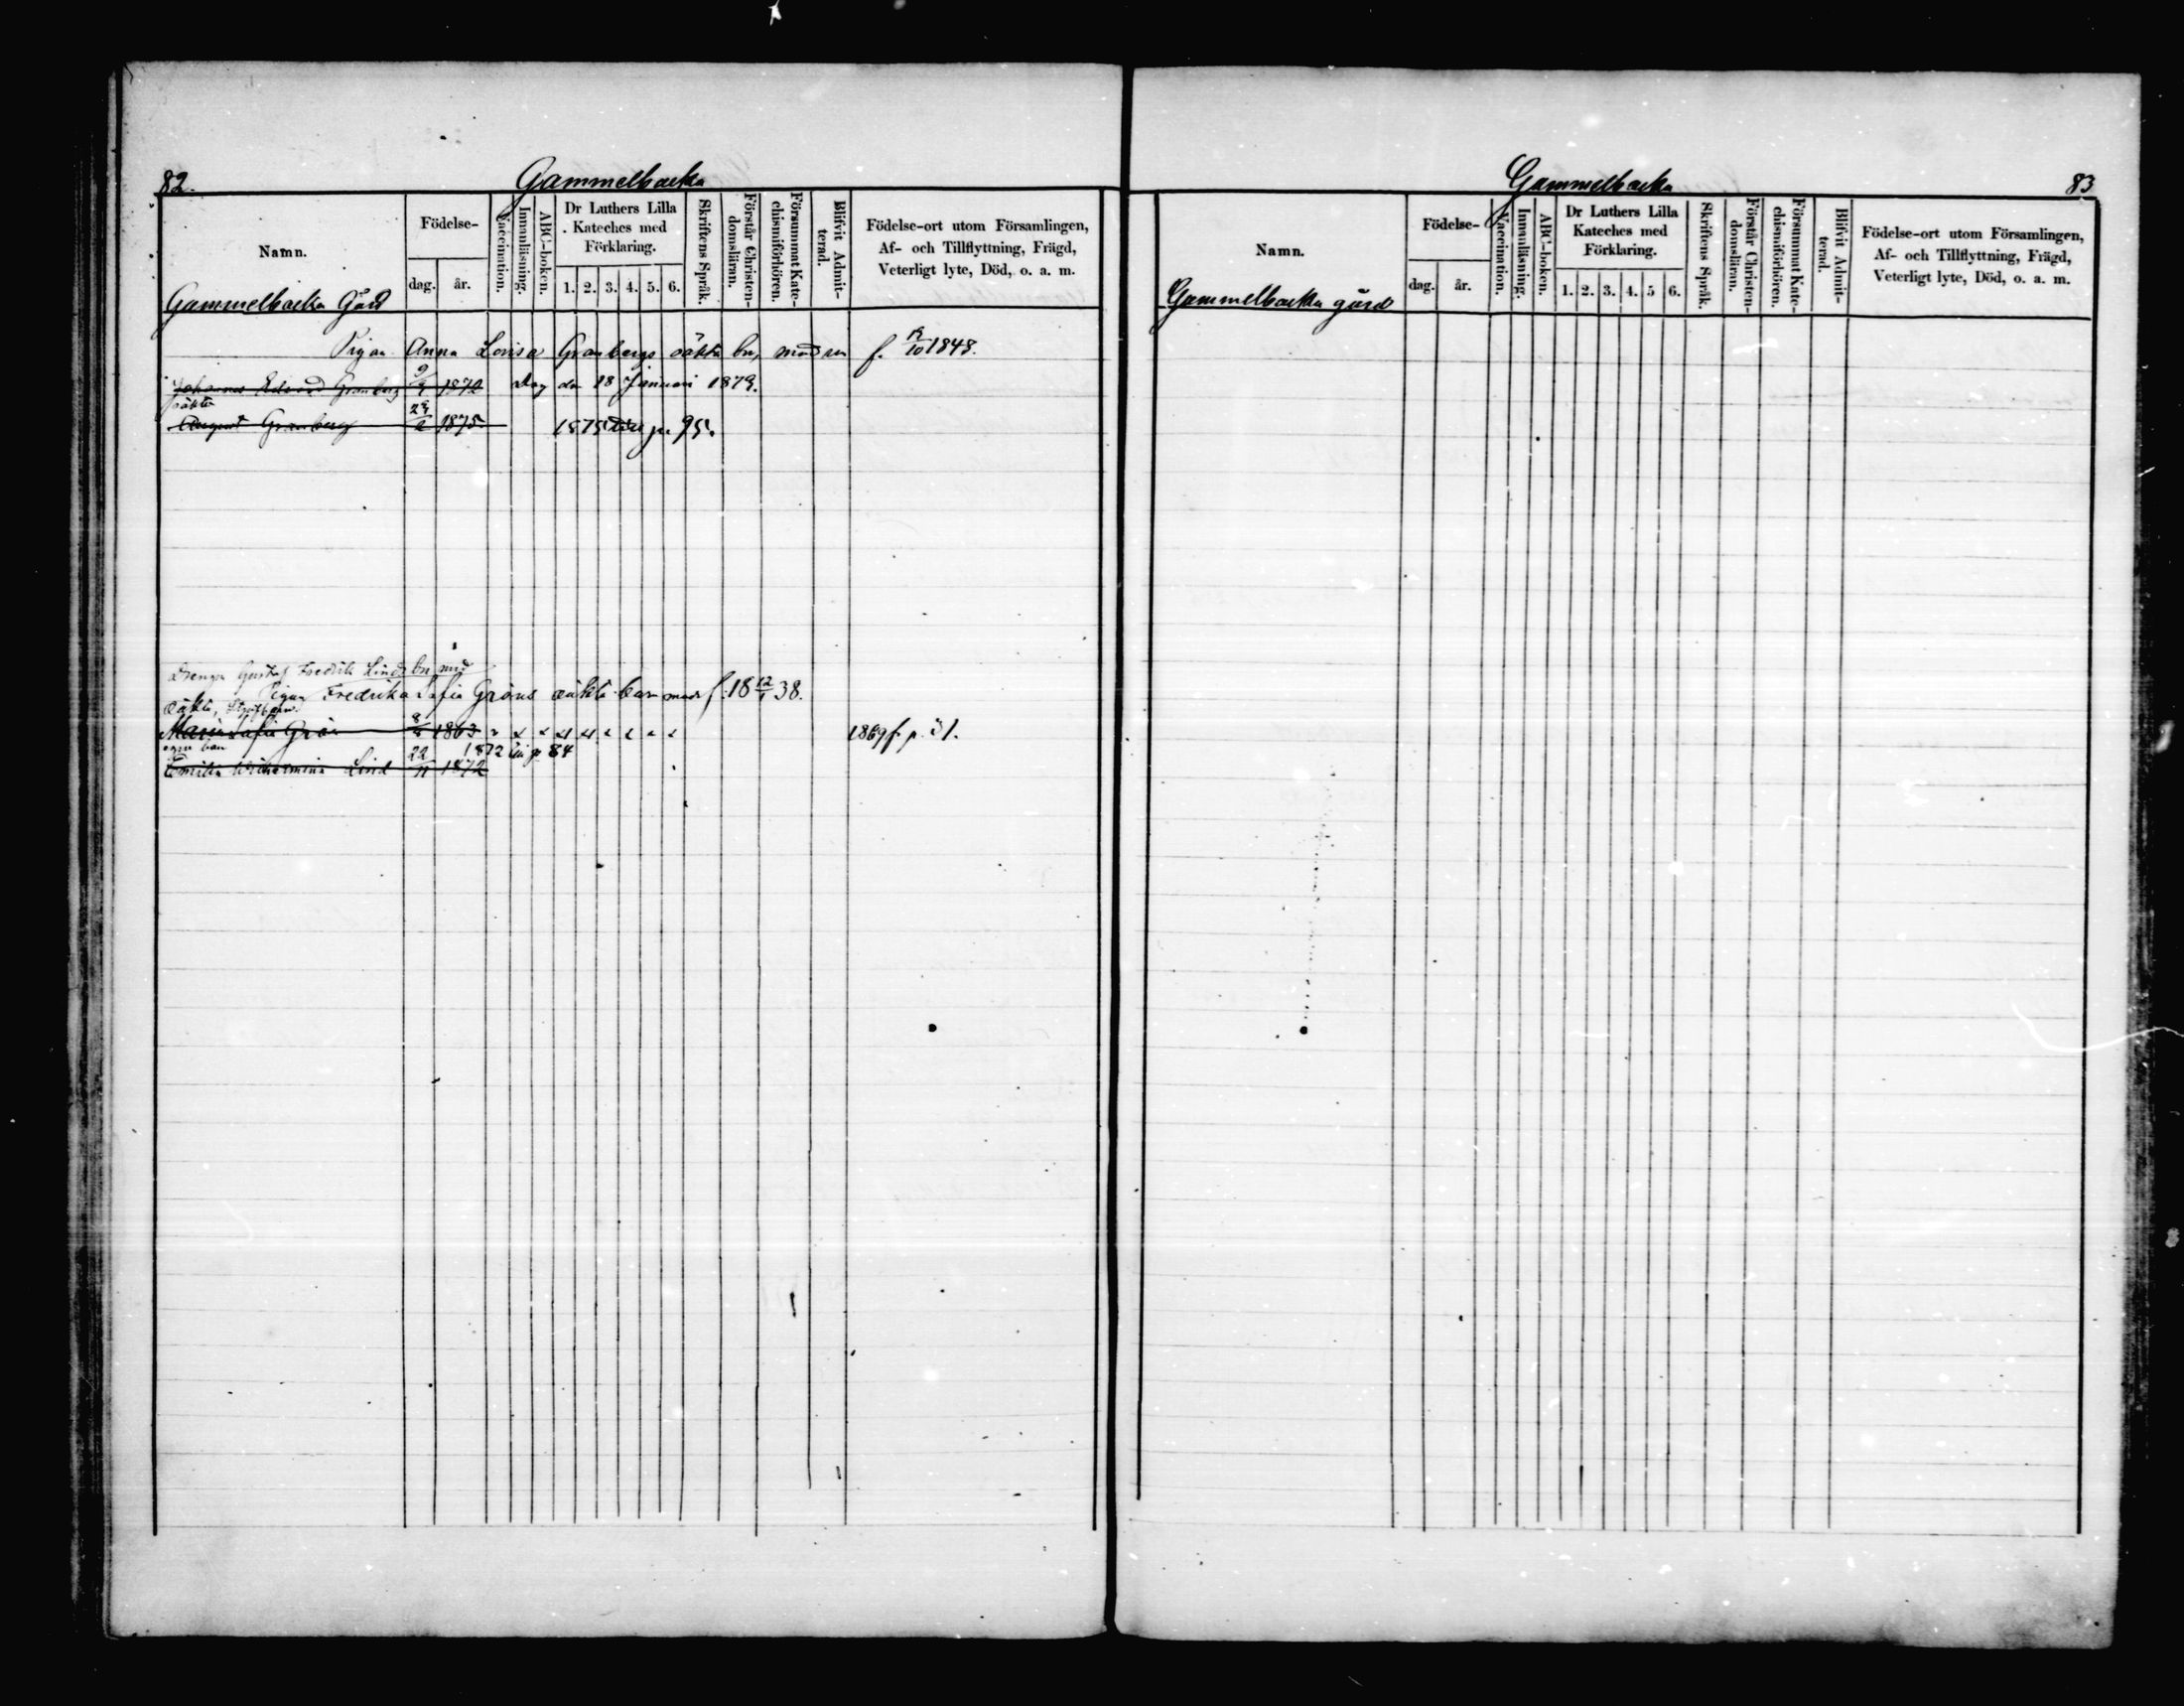 82.
Gammelbacka
Namn.
Födelse-
dag.
år.
Vaccination.
Innanläsning.
ABC-boken.
Dr Luthers Lilla
Kateches med
Förklaring.
1. 2. 3. 4. 5. 6.
Skriftens Språk.
Förstår Christen-
domsläran.
Försummat Kate-
chismiförhören.
Blifvit Admit-
terad.
Födelse-ort utom Församlingen,
Af- och Tillflyttning, Frägd,
Veterligt lyte, Död, o. a. m.
Gammelbacka Gård
Pigan Anna Lovisa Granbergs oäkta bn, modren f. 19/10 1848.
Johannes Edvard Granberg 9/4 1872 den 18 Januari 1879.
oäkta
August Granberg 1875 1875 p. 95.
Drengen Gustaf Fredrik Linds bn med
Pigan Fredrika Sofia Gröns oäkta barn modr f. 18 12/1 38.
oäkta,
Maria Sofia Grön 1863 1869 f. p.
egna barn
1872 p. 84
Emilia Wilhelmina Lind 22/11 1872
Gammelbacka
83
Namn.
Födelse-
dag.
år.
Vaccination.
Innanläsning.
ABC-boken.
Dr Luthers Lilla
Kateches med
Förklaring.
1. 2. 3. 4. 5 6.
Skriftens Språk.
Förstår Christen-
domsläran.
Försummat Kate-
chismiförhören.
Blifvit Admit-
terad.
Födelse-ort utom Församlingen,
Af- och Tillflyttning, Frägd,
Veterligt lyte, Död, o. a. m.
Gammelbacka gård